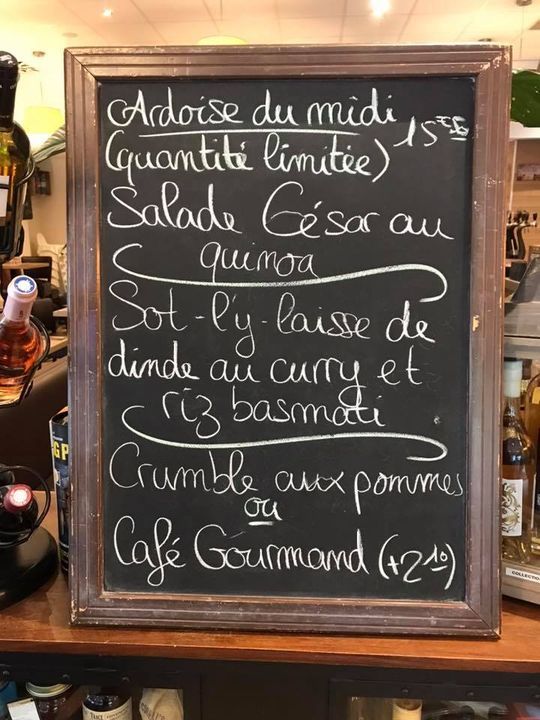 Ardoise du midi
(quantité limitée) 15€
Salade César au
quinoa
Sot-l'y-laisse de
dinde au curry et
riz basmati
Crumble aux pommes
ou
Café Gourmand (+2 10)
COLLECTION